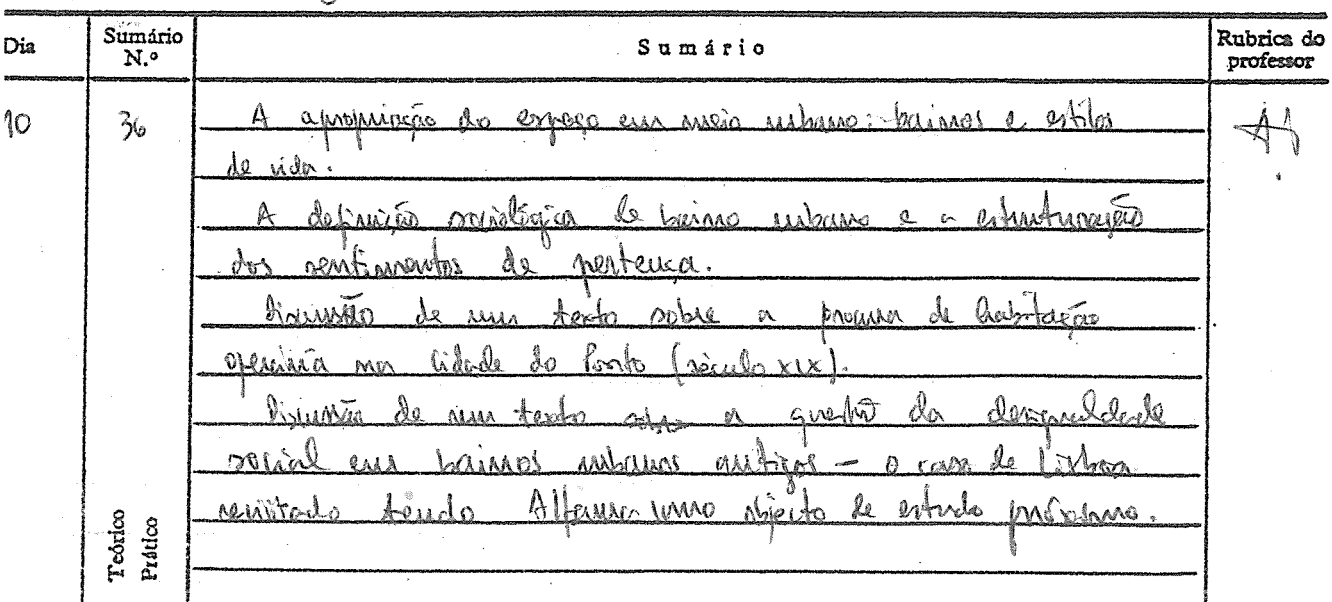 Dia
Sumário N.º
Sumário
Rubrica do professor
10
36
A apropriação do espaço em meio urbano: bairros e estilos
de vida.
A definição sociológica de bairro urbano e a estruturação
dos sentimentos de pertença.
Discussão de um texto sobre a procura de habitação
operária na cidade do Porto (século XIX).
Discussão de um texto sobre a questão da desigualdade
social em bairros urbanos antigos – o caso de Lisboa
revisitado tendo Alfama como objecto de estudo próximo.
Teórico
Prático